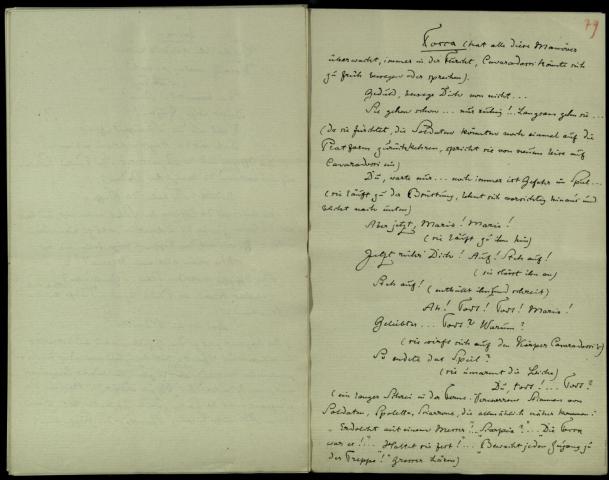 79
Tosca (hat alle diese Manöver
überwacht, immer in der Furcht, Cavaradossi könnte sich
zu früh bewegen oder sprechen).
Geduld, bewege Dich nun nicht...
Sie gehen schon... nur ruhig! Langsam gehn sie...
(da sie fürchtet, die Soldaten könnten noch einmal auf die
Platform zurückkehren, spricht sie von neuem leise auf
Cavaradossi ein)
Du, warte nur... noch immer ist Gefahr im Spiel...
(sie läuft zu der Brüstung, lehnt sich vorsichtig hinaus und
blickt nach unten)
Aber jetzt, Mario! Mario!
(sie läuft zu ihm hin)
Jetzt rühr' Dich! Auf! Steh auf!
(sie stösst ihn an)
Steh auf! (enthüllt ihn und schreit)
Ah! Tot! Tot! Mario!
Geliebter... Tot? Warum?
(sie wirft sich auf den Körper Cavaradossi's)
So endete das Spiel?
(sie umarmt die Leiche)
Du, tot!... Tot?
(ein langer Schrei in der Ferne. Verworrene Stimmen von
Soldaten, Spoletta, Sciarrone, die allmählich näher kommen:
"Erdolcht mit einem Messer"... "Scarpia?"... "Die Tosca
war es!"... "Haltet sie fest!"... "Bewacht jeden Zugang zu
der Treppe"! Grosser Lärm)